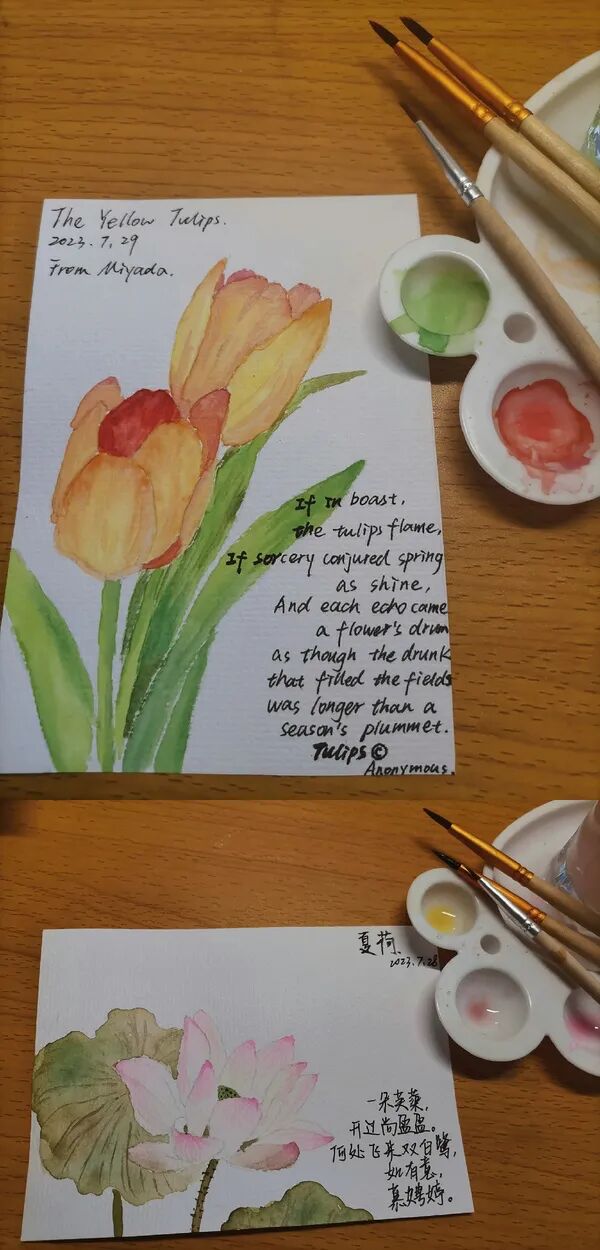 The Yellow Tulips.
2023.7.29
From Miyada.
If in boast,
the tulips flame,
If sorcery conjured spring
as shine,
And each echo came
a flower's drum
as though the drunk
that filled the fields
was longer than a
season's plummet.
Tulips ©
Anonymous.
夏荷
2023.7.28
一朵芙蕖,
开过尚盈盈。
何处飞来双白鹭,
如有意,
慕娉婷。